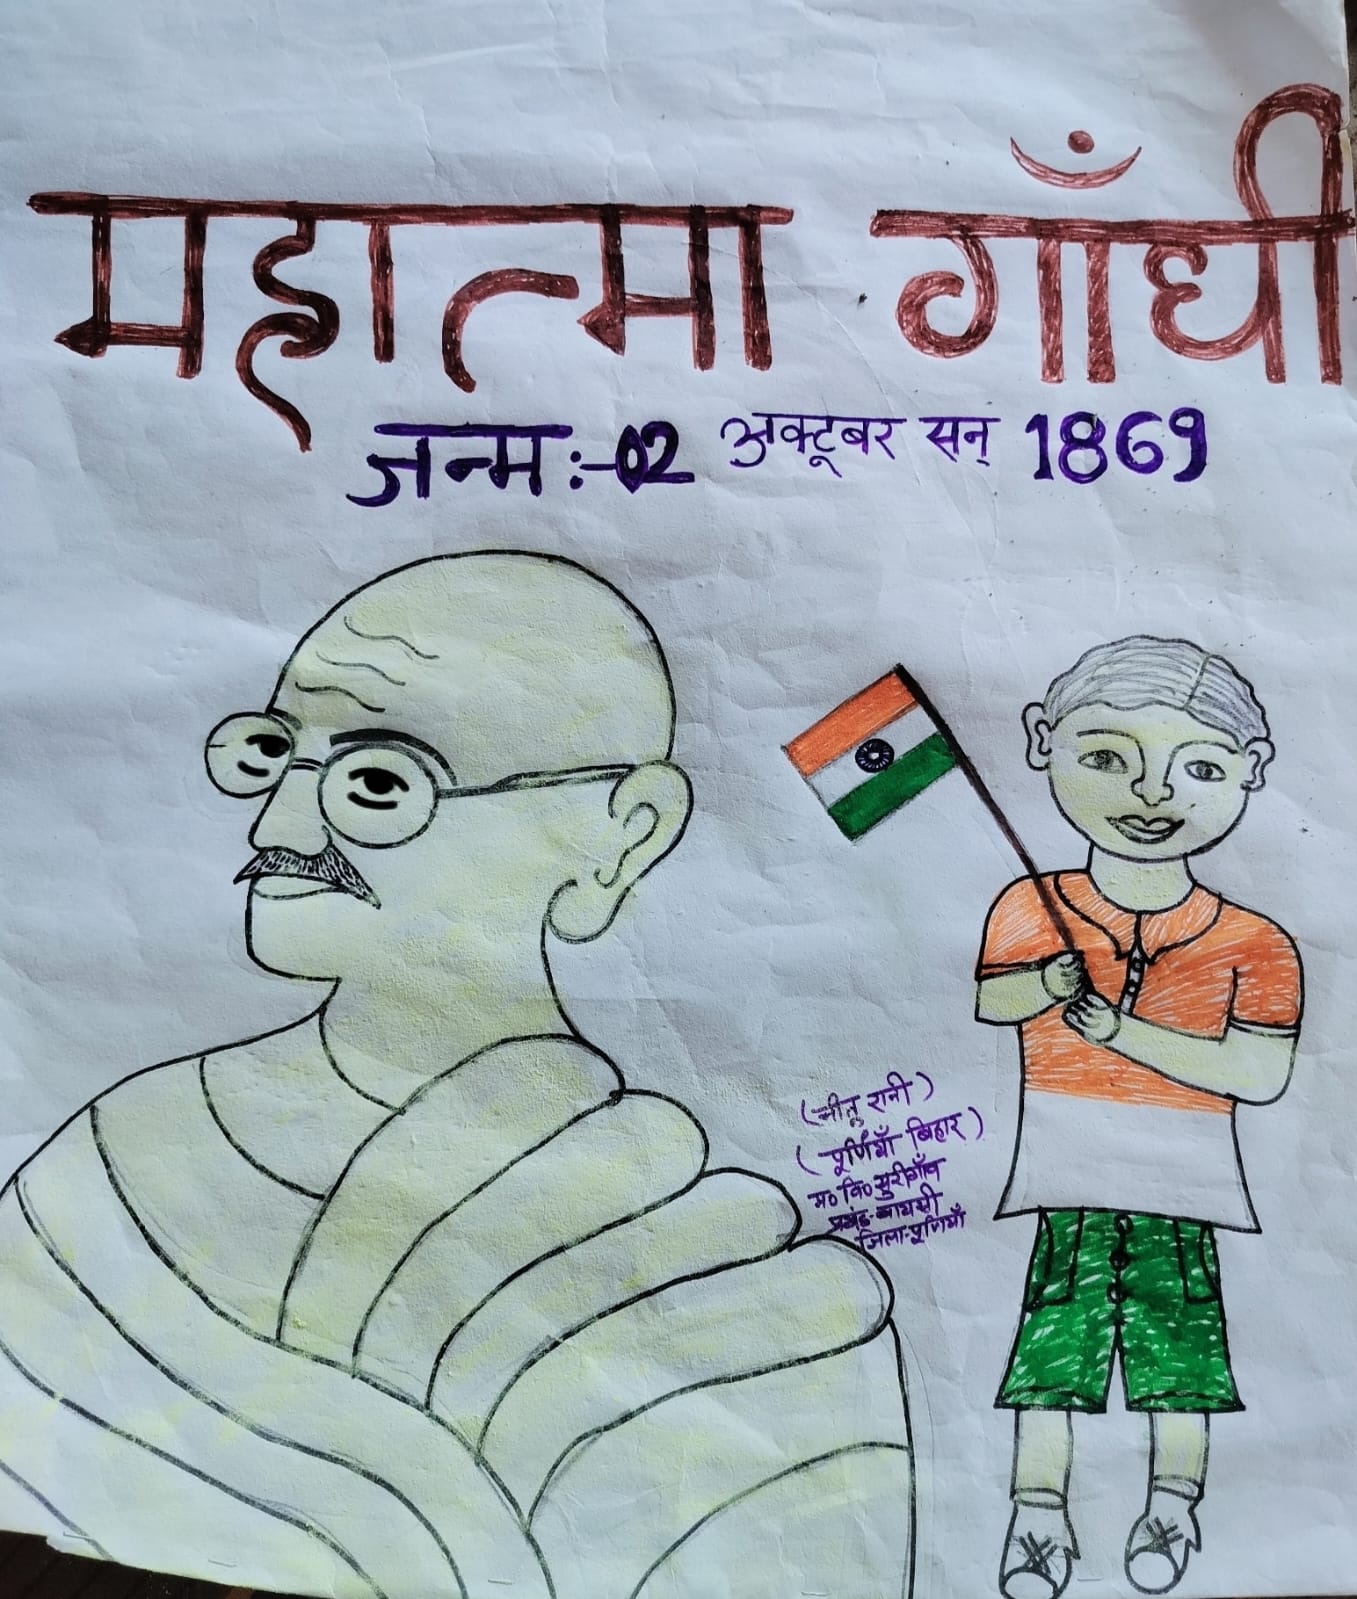 महात्मा गाँधी
जन्म :- 02 अक्टूबर सन् 1869
(नीतू रानी)
(पूर्णियाँ बिहार)
म० वि० सुरीगाँव
प्रखंड-बायसी
जिला-पूर्णियाँ